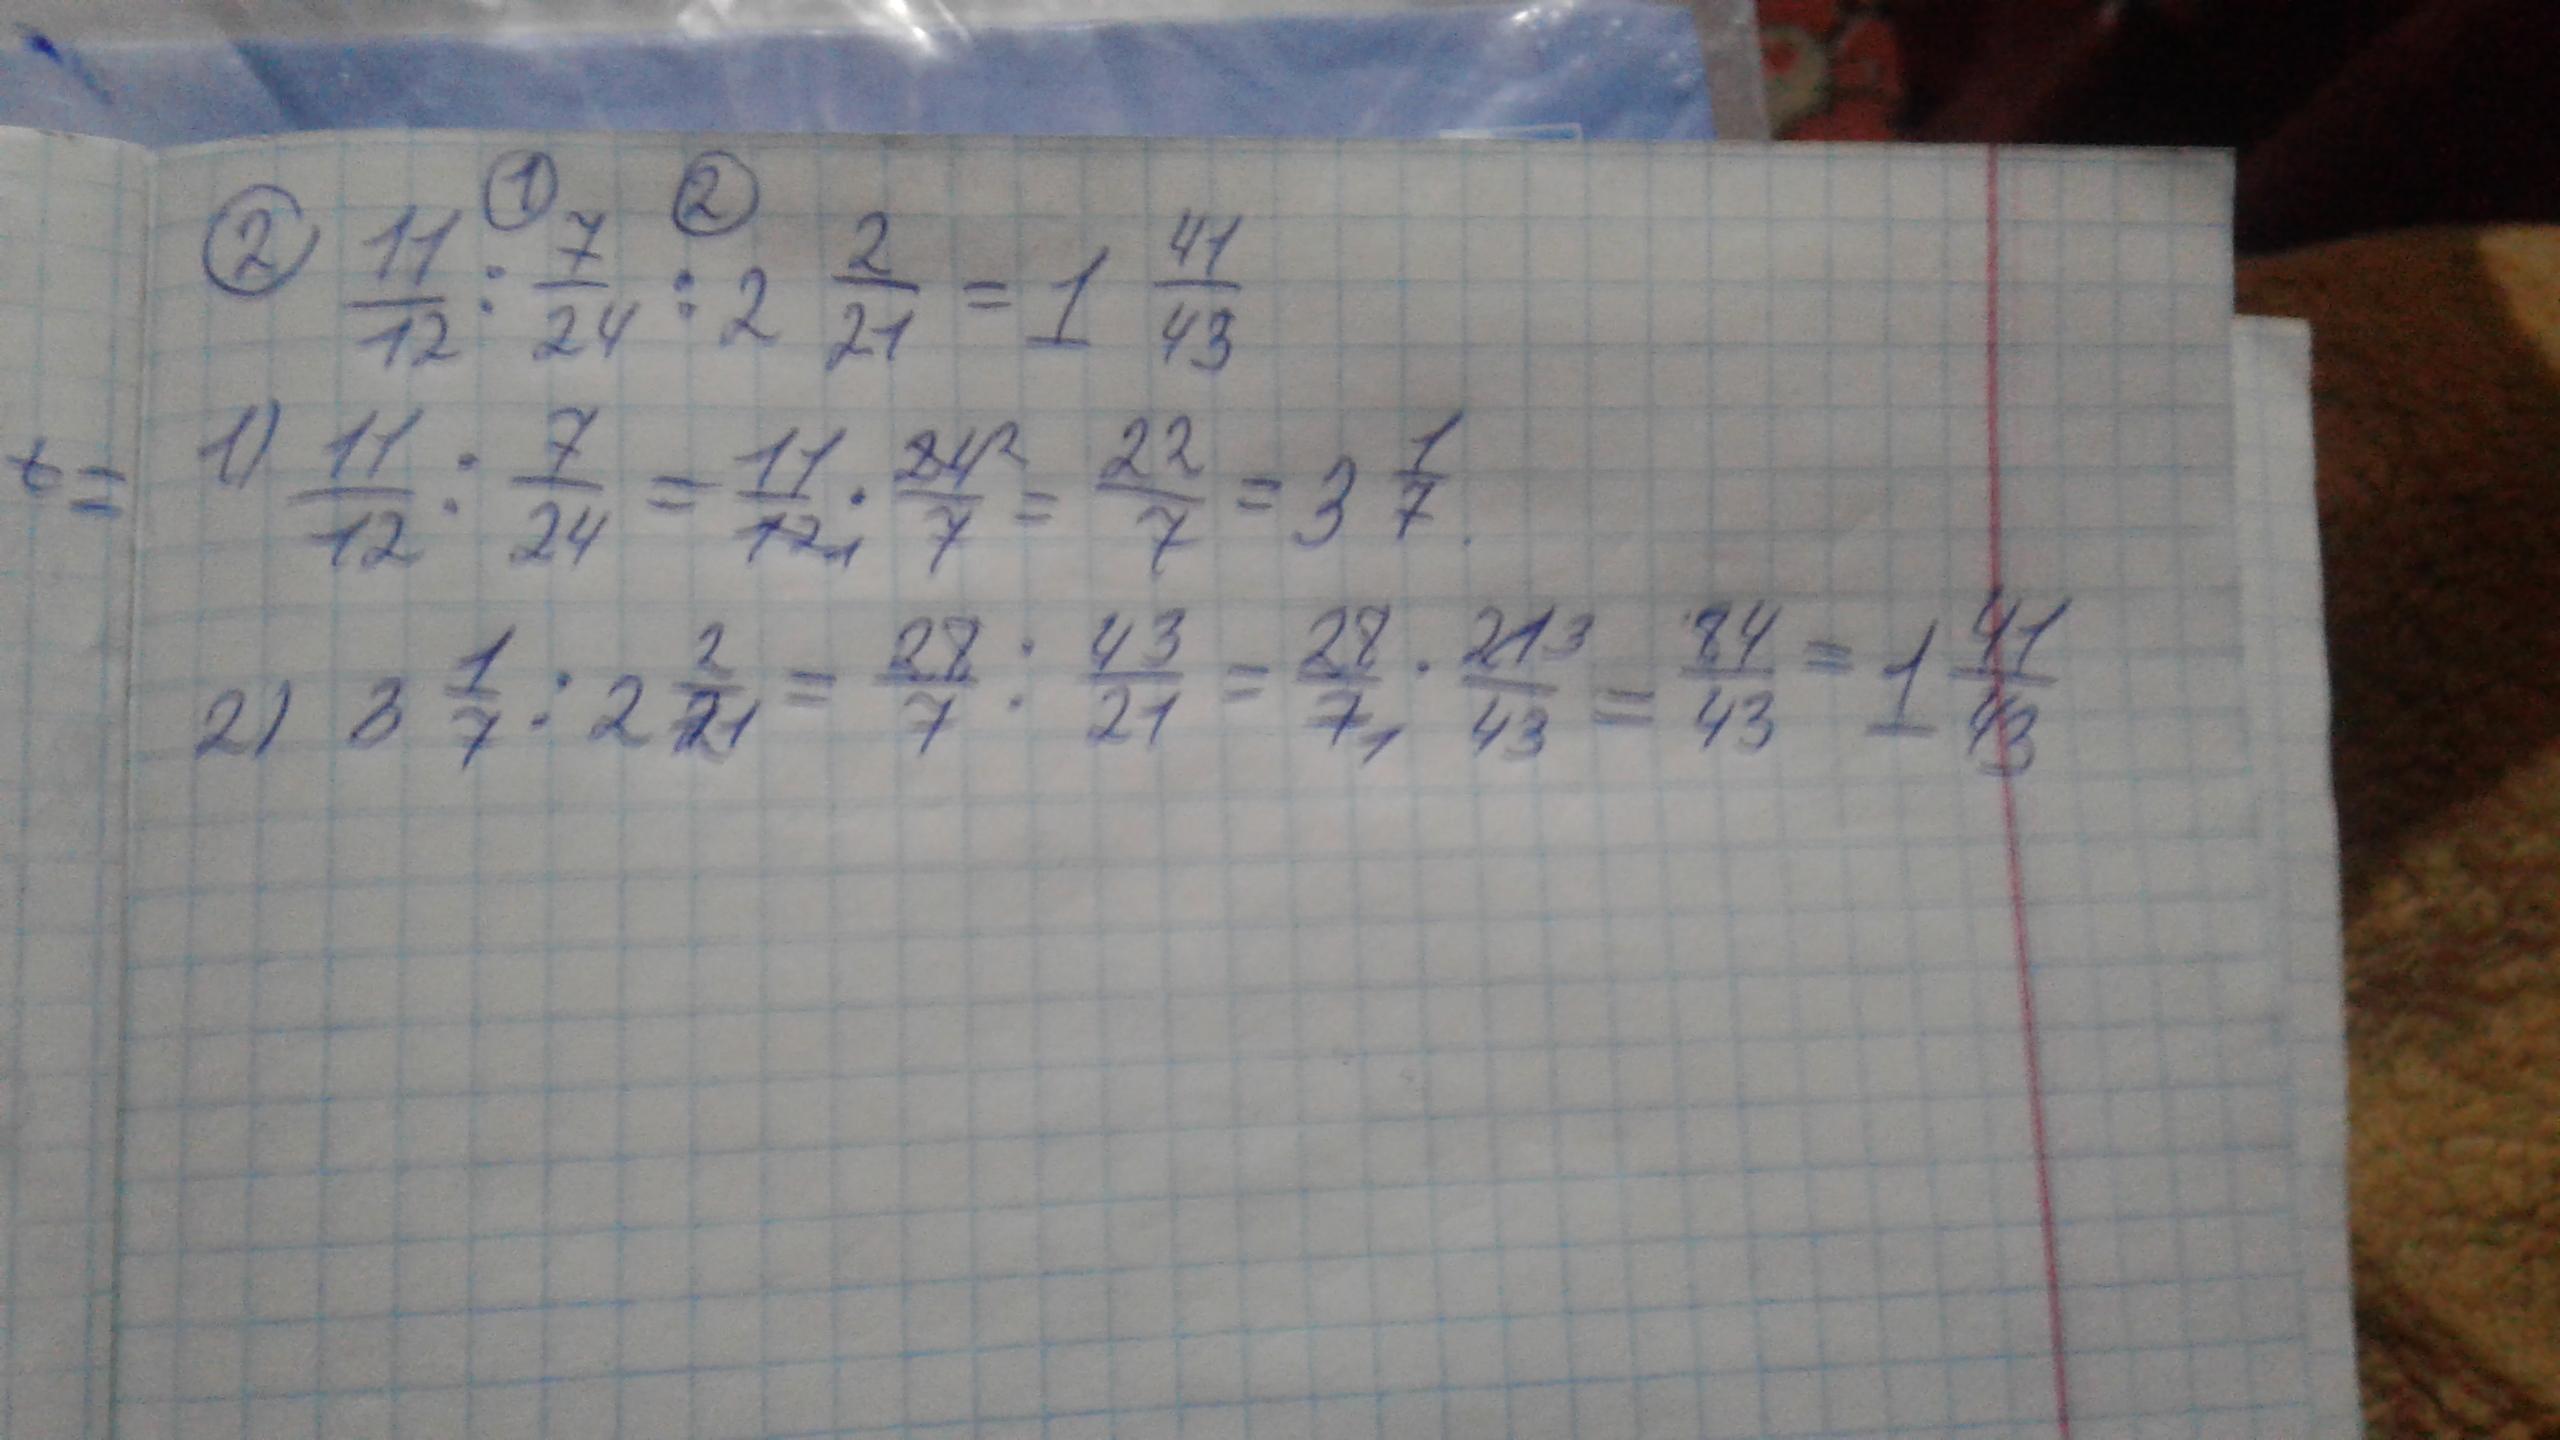 ② 11/12 :① 7/24 :② 2 2/21 = 1 41/43
1) 11/12 : 7/24 = 11/12 1 · 24 2/7 = 22/7 = 3 1/7.
=
2) 3 1/7 : 2 2/21 = 28/7 : 43/21 = 28/7 1 · 21 3/43 = 84/43 = 1 41/43